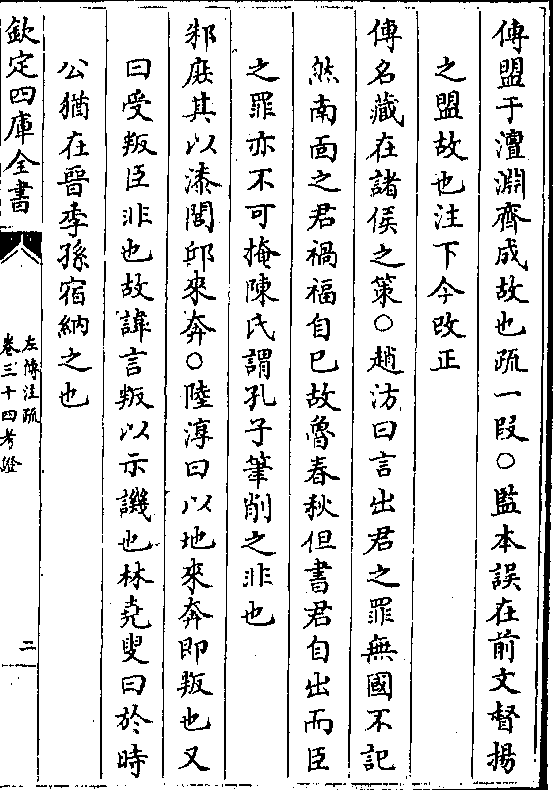 傳盟于澶淵齊成故也疏一段○監本誤在前文督揚
之盟故也注下今改正
傳名藏在諸侯之策○趙汸曰言出君之罪無國不記
然南面之君禍福自巳故魯春秋但書君自出而臣
之罪亦不可掩陳氏謂孔子筆削之非也
邾庶其以漆閭邱來奔○陸淳曰以地來奔即叛也又
曰受叛臣非也故諱言叛以示譏也林堯叟曰於時
公猶在晉季孫宿納之也
欽定四庫全書
左傳注疏
卷三十四考證
二